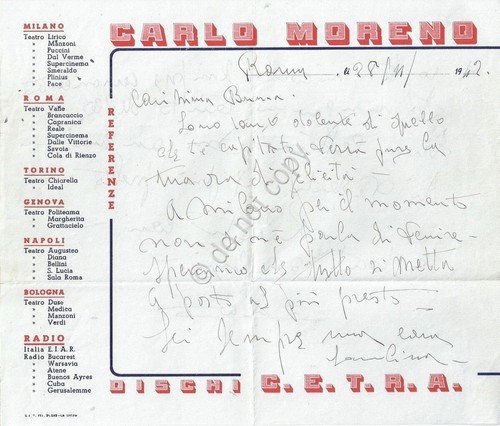 CARLO MORENO
MILANO
Teatro Lirico
» Manzoni
» Puccini
» Dal Verme
» Supercinema
» Smeraldo
» Plinius
» Pace
ROMA
Teatro Valle
» Brancaccio
» Capranica
» Reale
» Supercinema
» Dalle Vittorie
» Savoia
» Cola di Rienzo
TORINO
Teatro Chiarella
» Ideal
GENOVA
Teatro Politeama
» Margherita
» Grattacielo
NAPOLI
Teatro Augusteo
» Diana
» Bellini
» S. Lucia
» Sala Roma
BOLOGNA
Teatro Duse
» Medica
» Manzoni
» Verdi
RADIO
Italia E.I.A.R.
Radio Bucarest
» Warsavia
» Atene
» Buenos Ayres
» Cuba
» Gerusalemme
REFERENZE
Roma, li 28/11/1942
Carissima
Sono tanto dolente di quello
che ti capitato verrà pure la
tua ora di felicità -
A Milano per il momento
non se ne parla di venire -
Speriamo che tutto si metta
a posto al più presto -
sempre una cara
DISCHI C.E.T.R.A.
do not copy